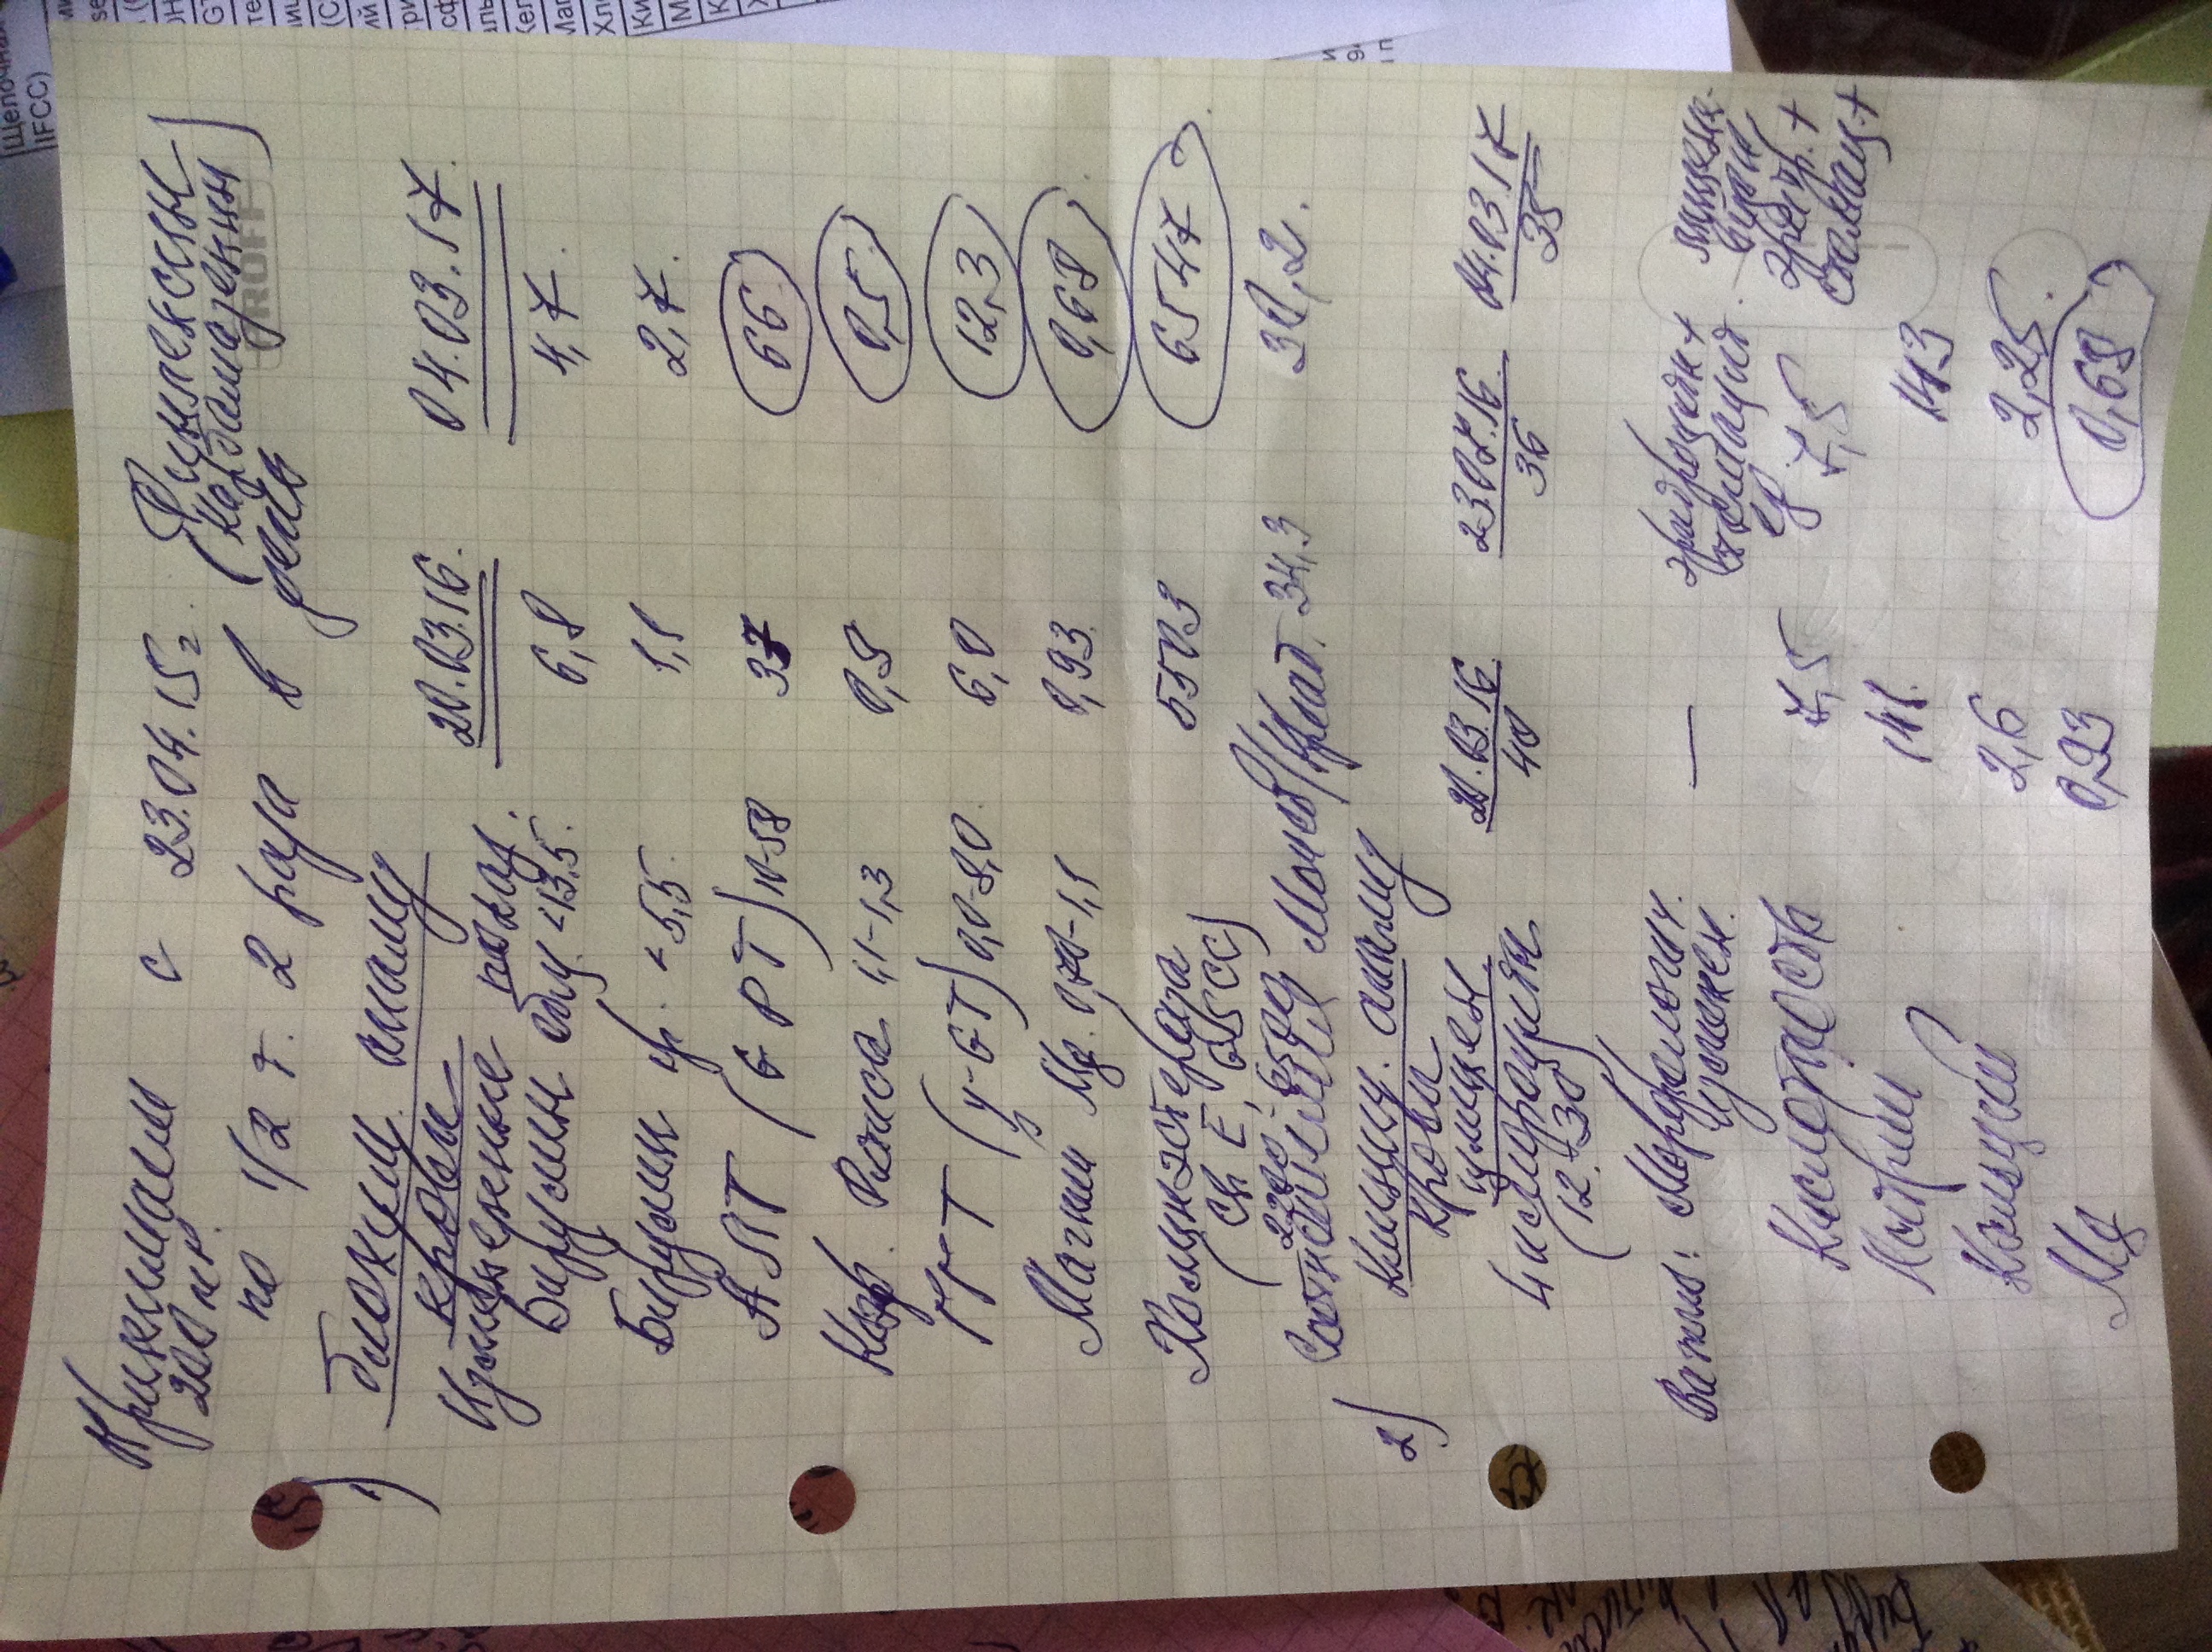 Принимаем с 23.04.15г. Финлепсин
200 мг. (карбамазепин)
по 1/2 т. 2 раза в день
1) биохим. анализ
крови 20.03.16. 04.03.17.
Изменение показ.
Бирубин общ. <13,5. 6,8 4,7.
Бирубин пр. < 5,5. 1,1 2,7.
АЛТ (GPT) N-58 37 66
Коэф. Ритиса 1,1-1,3 0,9 0,5
ГГТ (γ-GT) 0,0-8,0 6,0 12,3
Магний Mg. 0,70-1,1 0,93. 0,68
Холинэстераза
(CH E, GSCC) 5503 6547
Соотношение Мочев/Креат. 34,3 30,2.
2) Клинич. анализ
крови 20.03.16 23.07.16. 04.03.17
измен 40 36 35
(12-30)
Важно! Морфологич. —
изменен.
Кислотность 7,5 7,5
Натрий 141. 143
Кальций 2,6 2,25.
Mg 0,93 0,68
PROFF
Щелочная
IFCC)